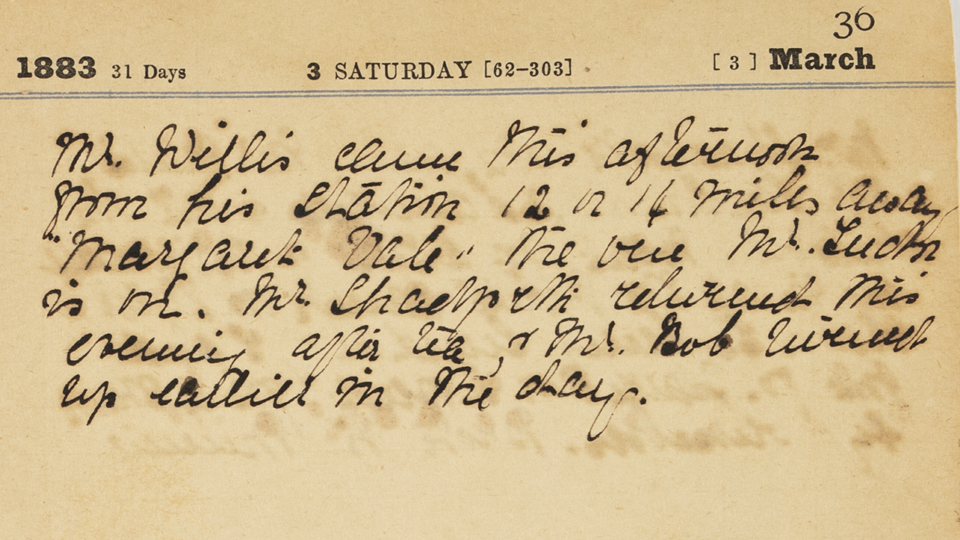 36
1883 31 Days 3 SATURDAY [62-303] [3] March
Mr. Willis came this afternoon
from his station 12 or 14 miles away
"Margaret Vale" the one Mr.
is on. Mr. returned this
evening after tea, & Mr. Bob turned
up earlier in the day.